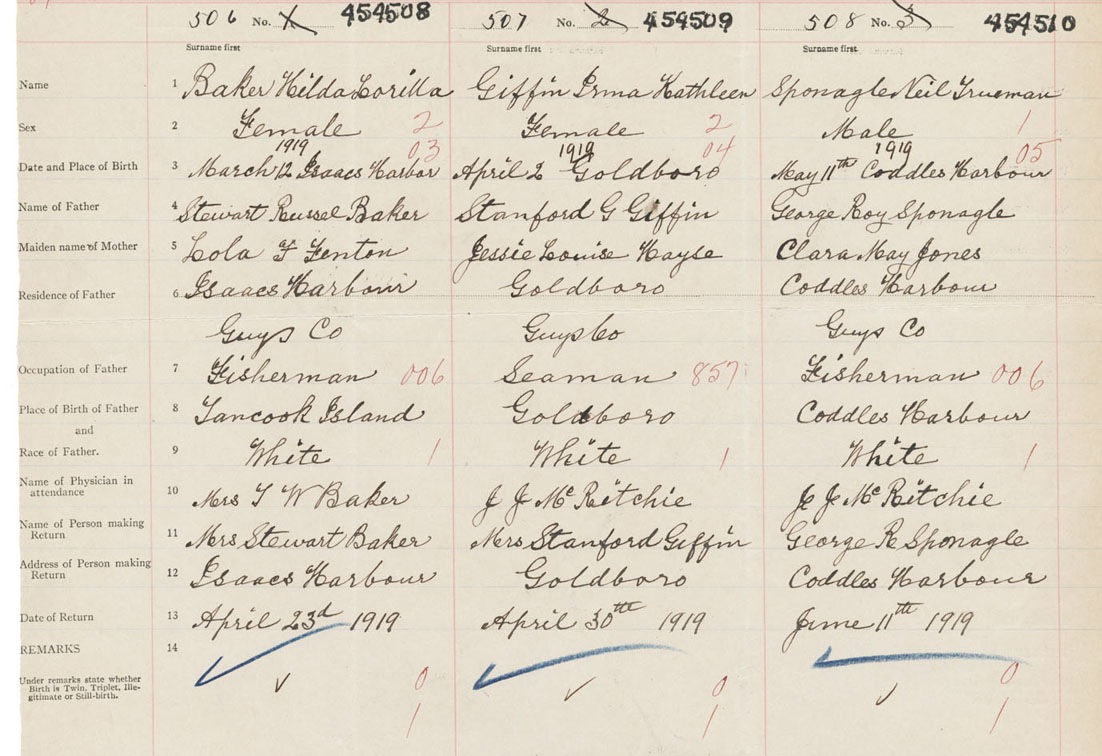 506 No. 1 454508 507 No. 2 454509 508 No. 3 454510
Surname first Surname first Surname first
Name 1 Baker Hilda Lorilla Giffin Irma Kathleen Sponagle Neil Trueman
Sex 2 Female 2 Female 2 Male 1
1919 03 1919 04 1919 05
Date and Place of Birth 3 March 12 Isaacs Harbor April 2 Goldboro May 11th Coddles Harbour
Name of Father 4 Stewart Russel Baker Stanford G Giffin George Roy Sponagle
Maiden name of Mother 5 Lola Fenton Jessie Louise Hayse Clara May Jones
Residence of Father 6 Isaacs Harbour Goldboro Coddles Harbour
Guys Co Guys Co Guys Co
Occupation of Father 7 Fisherman 006 Seaman 857 Fisherman 006
Place of Birth of Father 8 Tancook Island Goldboro Coddles Harbour
and
Race of Father. 9 White 1 White 1 White 1
Name of Physician in
attendance 10 Mrs T W Baker J J McRitchie J J McRitchie
Name of Person making
Return 11 Mrs Stewart Baker Mrs Stanford Giffin George R Sponagle
Address of Person making
Return 12 Isaacs Harbour Goldboro Coddles Harbour
Date of Return 13 April 23d 1919 April 30th 1919 June 11th 1919
REMARKS 14
Under remarks state whether
Birth is Twin, Triplet, Ille-
gitimate or Still-birth.
0 0 0
1 1 1